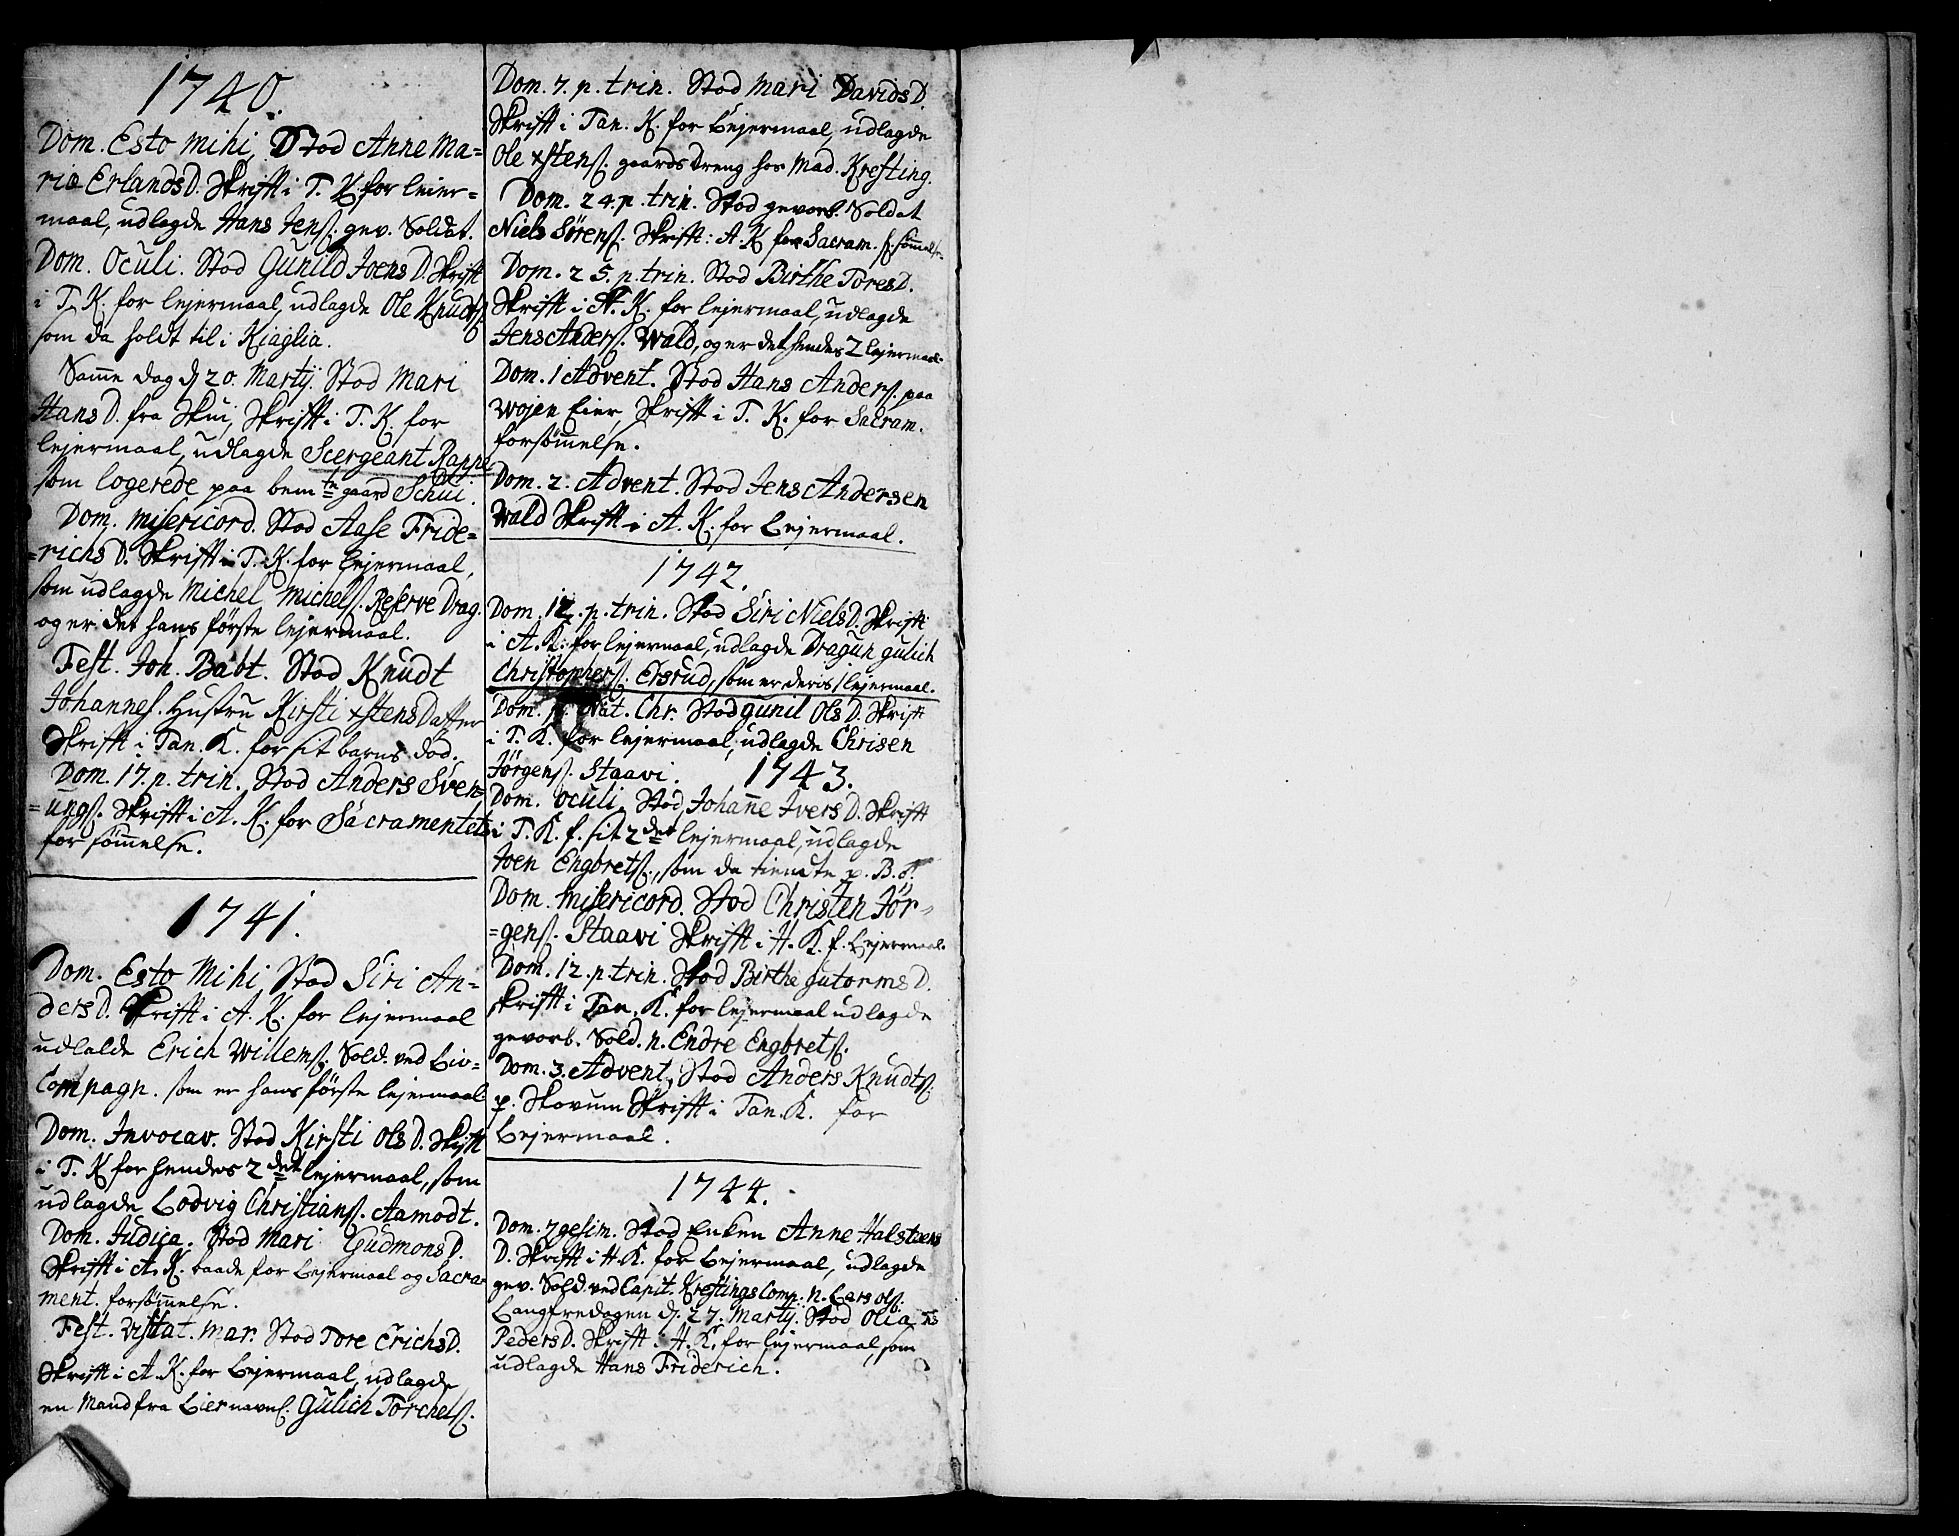 1740.
Dom. Esto Mihi, Stod Anne Ma=
ria ErlandsD. Skrift i T. K. for leier=
maal, udlagde Hans Jenß. gev. Soldat.
Dom. Oculi. Stod Gunild JoensD. Skrift
i T. K. for lejermaal, udlagde Ole Knudß.
som da holdt til i Kjaglia.
Samme dag d 20. Martij. Stod Mari
HansD. fra Skui, Skrift i T. K. for
lejermaal, udlagde Scergeant Rappe
som logerede paa bemte gaard Schui.
Dom. misericord. Stod Aase Fride=
=richsD. Skrift i T. K. for lejermaal,
som udlagde Michel Michelß. Reserve Drag.
og er det hans förste lejermaal.
Fest. Joh. Babt. Stod Knudt
Johannes. Hustru Kirsti xstensDatter
Skrift i Tan. K. for sit barns död.
Dom. 17. p. trin. Stod Anders Sven=
=ungß. Skrift i A. K. for Sacramentets
forsömmelse.
1741.
Dom. Esto Mihi, Stod Siri An=
dersD. Skrift i A. K. for lejermaal
udlalde Erich Willenß. Sold. ved Liv=
Compagn. som er hans förste lejermaal
Dom. Invocav. Stod Kirsti OlsD. Skrift
i T. K for hendes 2det lejermaal, som
udlagde Lodvig Christianß. Aamodt.
Dom. Judica. Stod Mari GudmonsD.
Skrift i A. K. baade for Lejermaal og Sacra
ment. forsömmelse.
Fest. Visitat. Mar. Stod Tore ErichsD.
Skrift i A. K. for Lejermaal, udlagde
en Mand fra Lier navnl. Gulich Torchelß.
Dom. 7. p. trin. Stod Mari DavidsD.
Skrift i Tan. K. for Lejermaal, udlagde
Ole xstenß. gaards Dreng hos Mad. Kresting.
Dom. 24. p. trin. Stod gevorb. Soldat
Niels Sörenß. Skrift: A. K for Sacram. f.sömmelse
Dom. 25. p. trin. Stod Birthe ToresD.
Skrift i A. K. for lejermaal, udlagde
Jens Anderß. Wald, og er det hendes 2 lejermaal.
Dom. 1 Advent. Stod Hans Anderß. paa
Wøjen Eier, Skrift i T. K. for Sacram.
forsömmelse.
Dom. 2. Advent. Stod Jens Andersen
Wald Skrift i A. K. for Lejermaal.
1742.
Dom. 12. p. trin. Stod Siri NielsD. Skrift
i A. K. for lejermaal, udlagde Dragun gulich
Christopherß. Ersrud, som er deris 1 lejermaal.
Dom. p. Nat. Chr. Stod gunil OlsD. Skrift
i T. K. for lejermaal, udlagde Chrisen
Jörgenß. Staavi.
1743.
Dom. Oculi, Stod, Johanne IversD. Skrift
i T. K. f. sit 2det lejermaal, udlagde
Joen Engbretß., som da tiente p. B.
Dom. misericord. Stod Christen Jör=
=genß. Staavi Skrift i H. K. f. Lejermaal.
Dom. 12. p. trin. Stod Birthe gutormsD.
skrift i Tan. K. for lejermaal udlagde
gevorb. Sold. n. Endre Engbretß.
Dom. 3. Advent, Stod Anders Knudtß.
p. Skovum Skrift i Tan. K. for
Lejermaal.
1744.
Dom. 7gesim. Stod Enken Anne Halstens
D. Skrift i H. K. for Lejermaal, udlagde
gev. Sold ved Capit. Krestings Comp. n. Lars Olß.
Langfredagen d. 27. Martij. Stod Olia
PedersD. Skrift i H. K. for lejermaal, som
udlagde Hans Friderich.